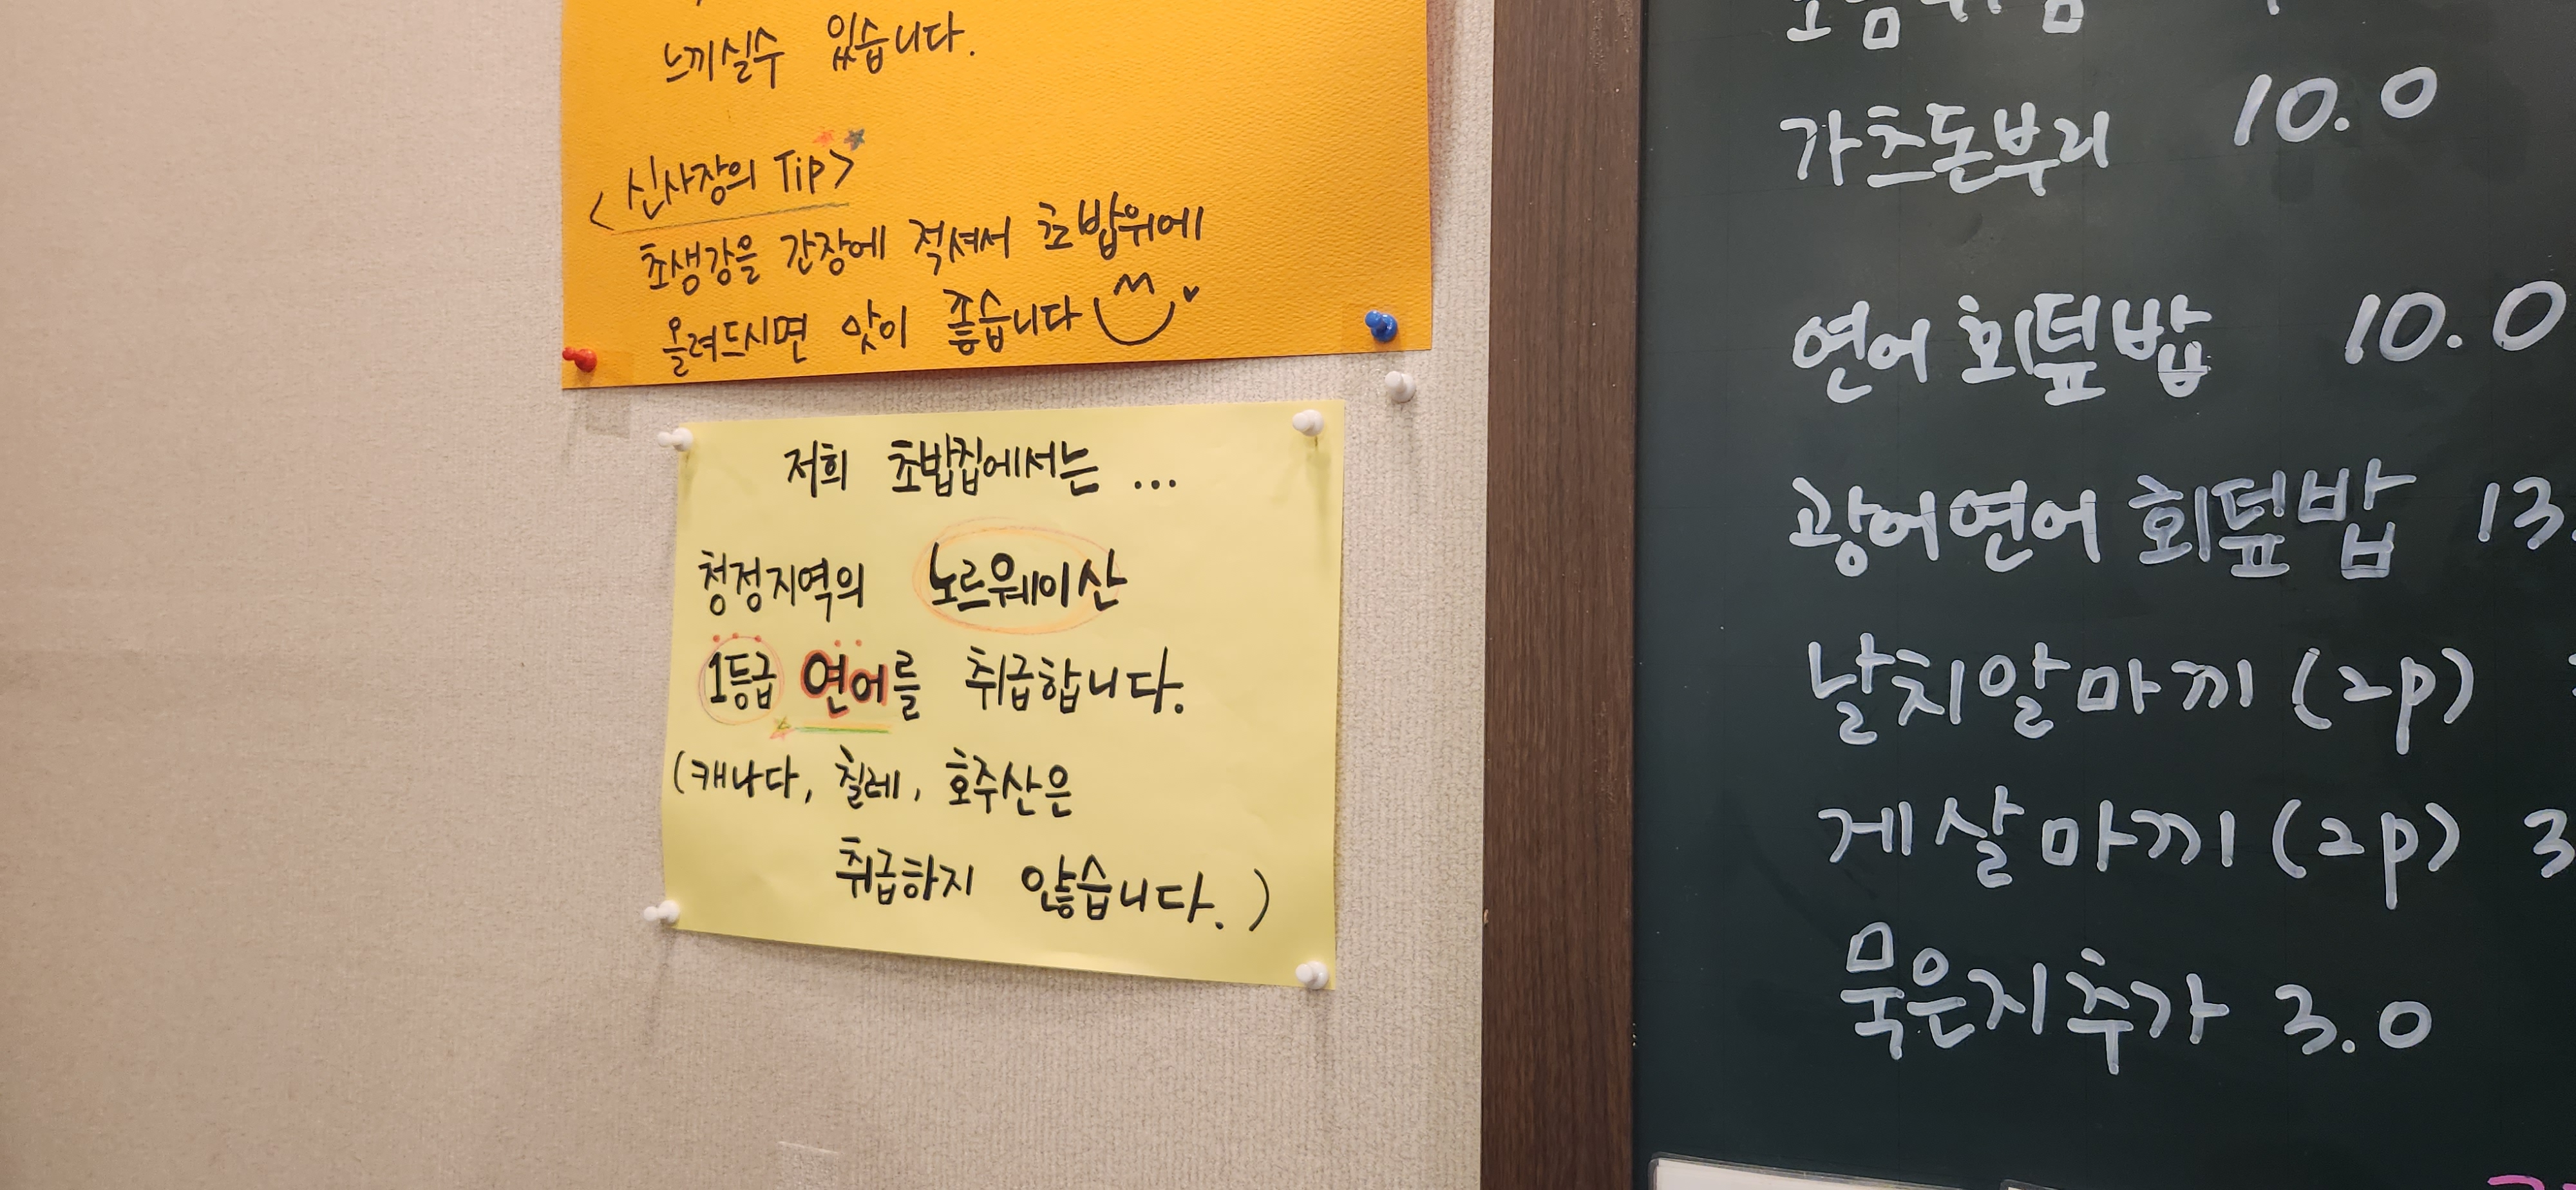 느끼실수 있습니다.
<신사장의 Tip>
초생강을 간장에 적셔서 초밥위에
올려드시면 맛이 좋습니다
저희 초밥집에서는 ...
청정지역의 노르웨이산
1등급 연어를 취급합니다.
(캐나다, 칠레, 호주산은
취급하지 않습니다.)
가츠돈부리 10.0
연어 회덮밥 10.0
광어연어 회덮밥 13.
날치알마끼 (2p)
게살마끼 (2p) 3
묵은지추가 3.0